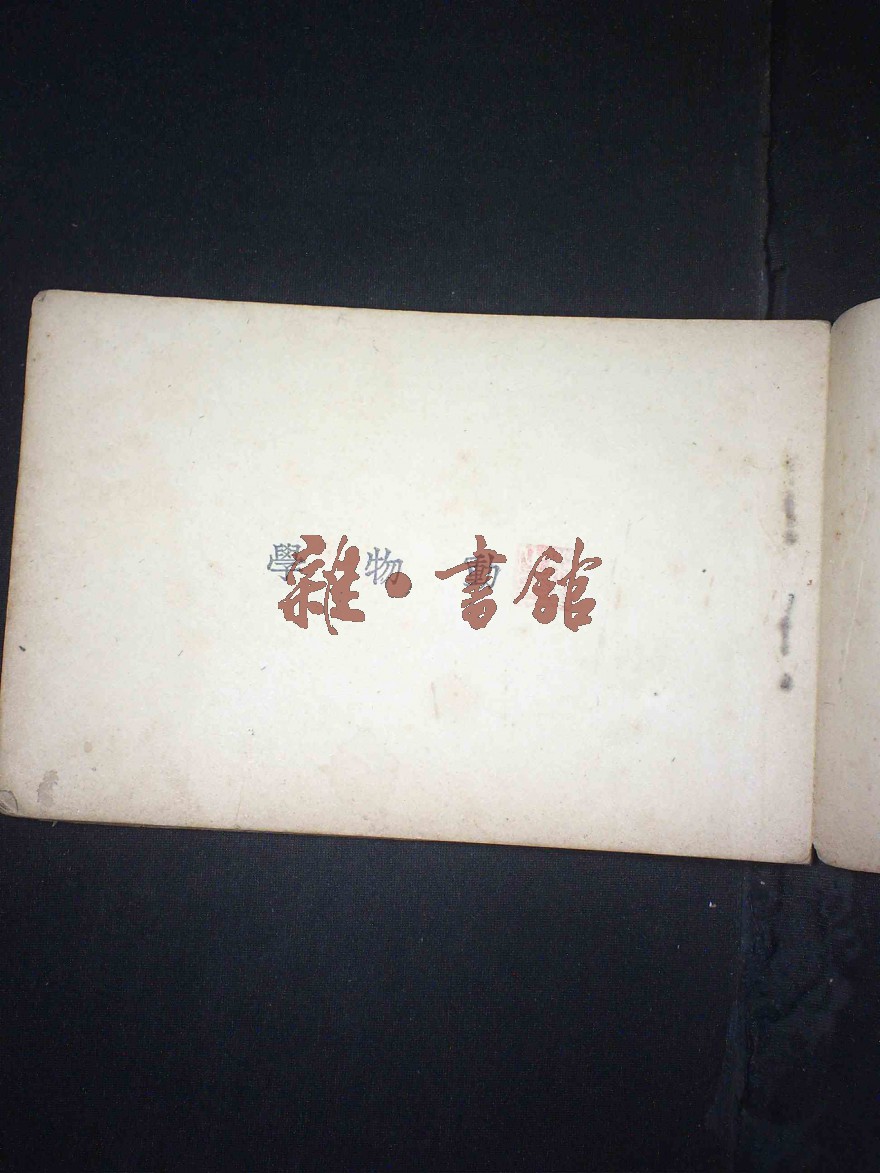 動物學
雜·書館